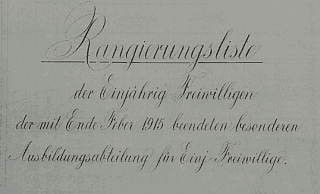 Rangierungsliste
der Einjährig Freiwilligen
der mit Ende Feber 1915 beendeten besonderen
Ausbildungsabteilung für Einj. Freiwillige.